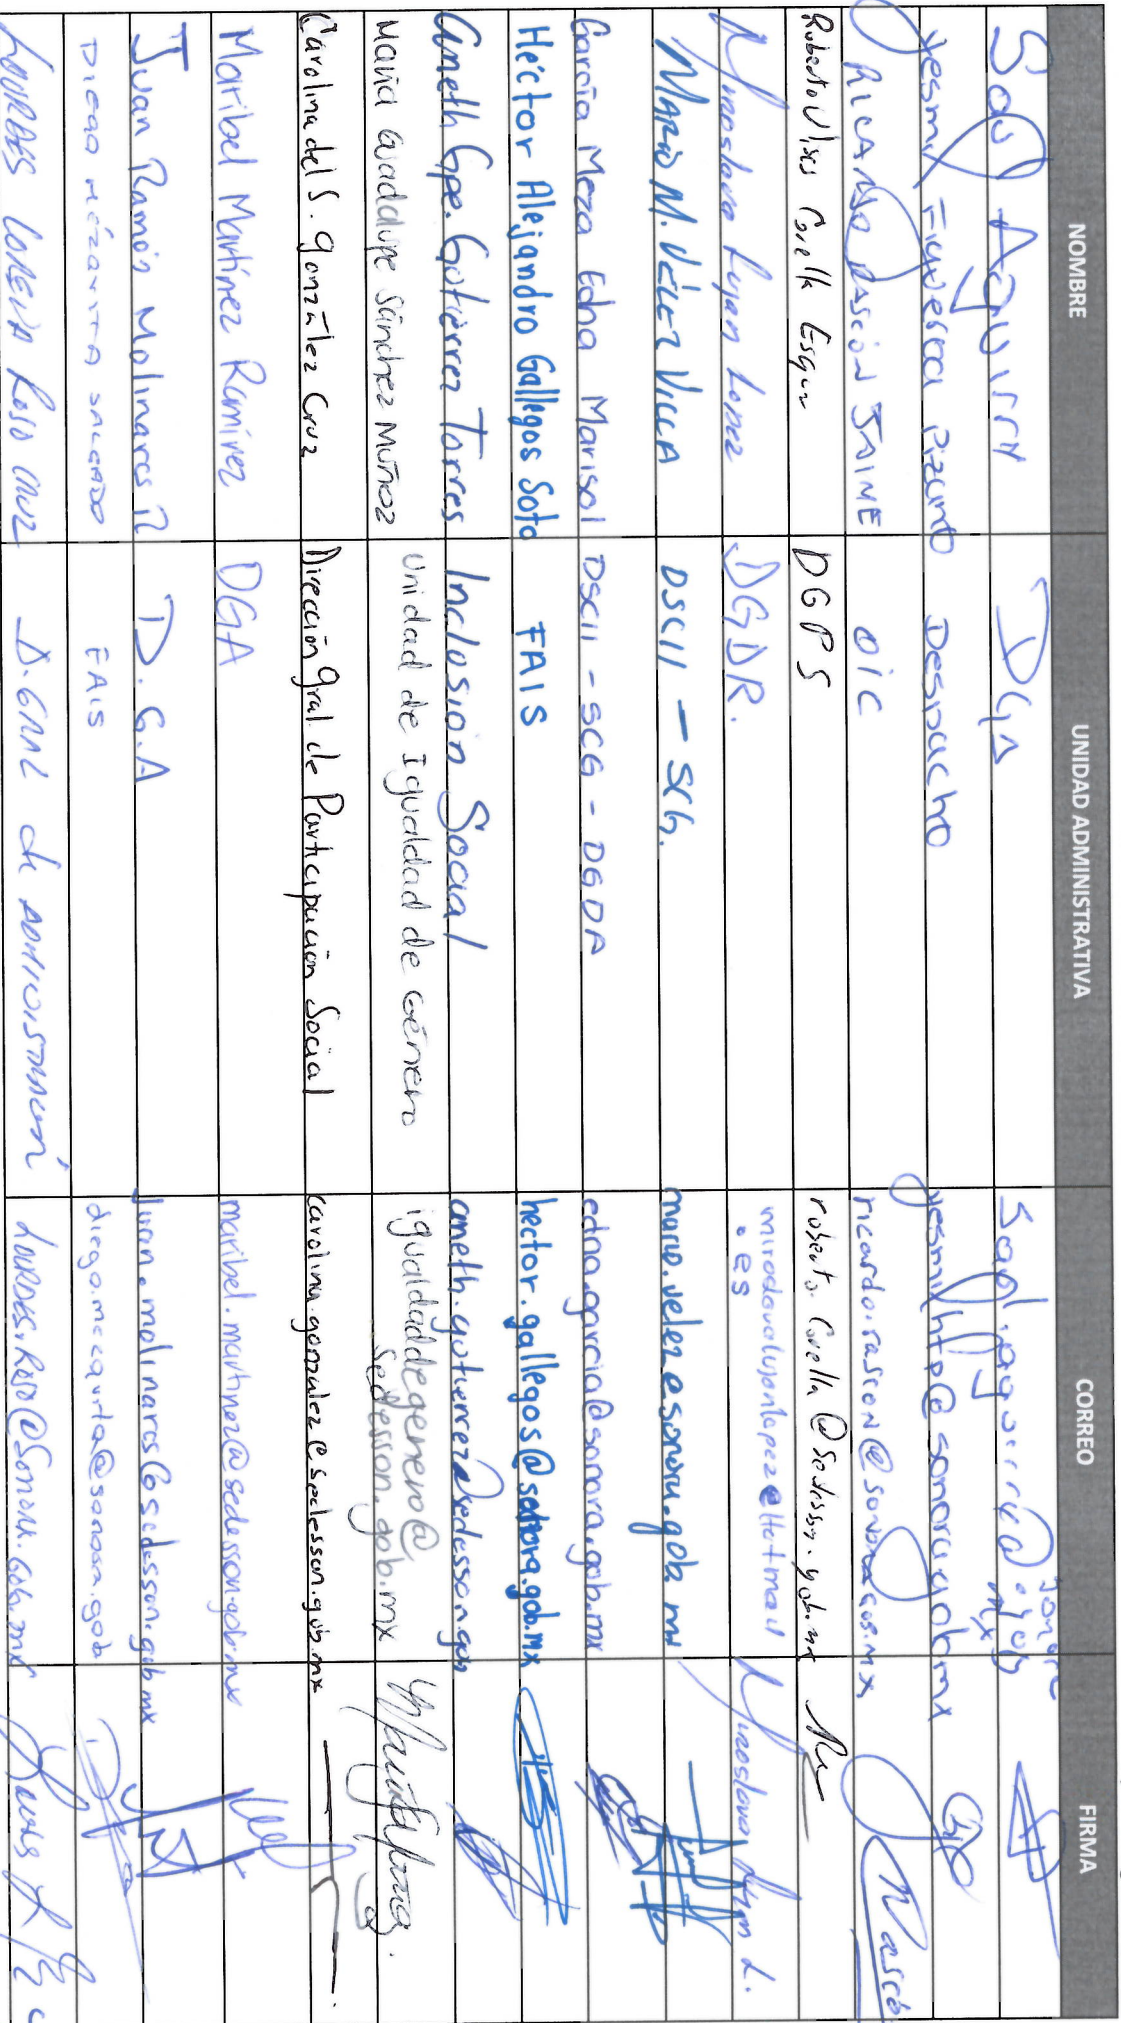 NOMBRE UNIDAD ADMINISTRATIVA CORREO FIRMA
Saúl Aguirre DGA
Yesmil Figueroa Despacho
RICARDO RASCÓN JAIME OIC
Roberto Ulises Corella DGPS
Miroslava Lujan Lopez DGDR. miroslavalujanlopez@Hotmail.es Miroslava
MARIO M. VÉLEZ DSCII - SCG. mario.velez@sonora.gob.mx
García Meza Edna Marisol DSCII - SCG - DGDA edna.garcia@sonora.gob.mx
Héctor Alejandro Gallegos Soto FAIS hector.gallegos@sonora.gob.mx
Ameth Gpe. Gutiérrez Torres Inclusión Social ameth.gutierrez@sedesson.gob
María Guadalupe Sánchez Muñoz Unidad de Igualdad de Género igualdaddegenero@
sedesson.gob.mx
Carolina del S. González Cruz Dirección Gral. de Participación Social carolina.gonzalez@sedesson.gob.mx
Maribel Martínez Ramírez DGA maribel.martinez@sedesson.gob.mx
Juan Ramón Molinares D.G.A juan.molinares@sedesson.gob.mx
DIEGO MÉZQUITA SALGADO FAIS diego.mezquita@sonora.gob
LOURDES LORENIA ROSO CRUZ D. GRAL de ADMINISTRACIÓN LOURDES.ROSO@Sonora.Gob.mx